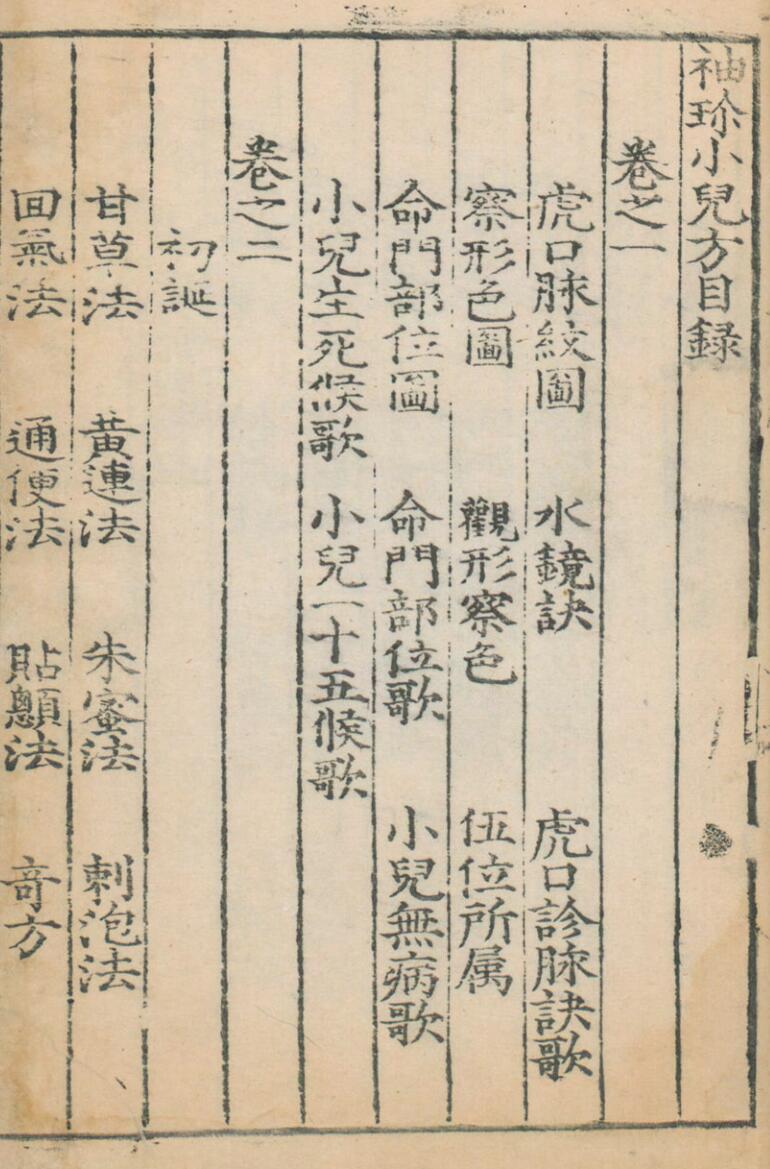 袖珍小兒方目録
卷之一
虎口脉紋圖 水鏡訣 虎口診脉訣歌
察形色圖 觀形察色 伍位所属
命門部位圖 命門部位歌 小兒無病歌
小兒生死候歌 小兒一十五候歌
卷之二
初誕
甘草法 黃連法 朱蜜法 刺泡法
回氣法 通便法 貼顖法 竒方